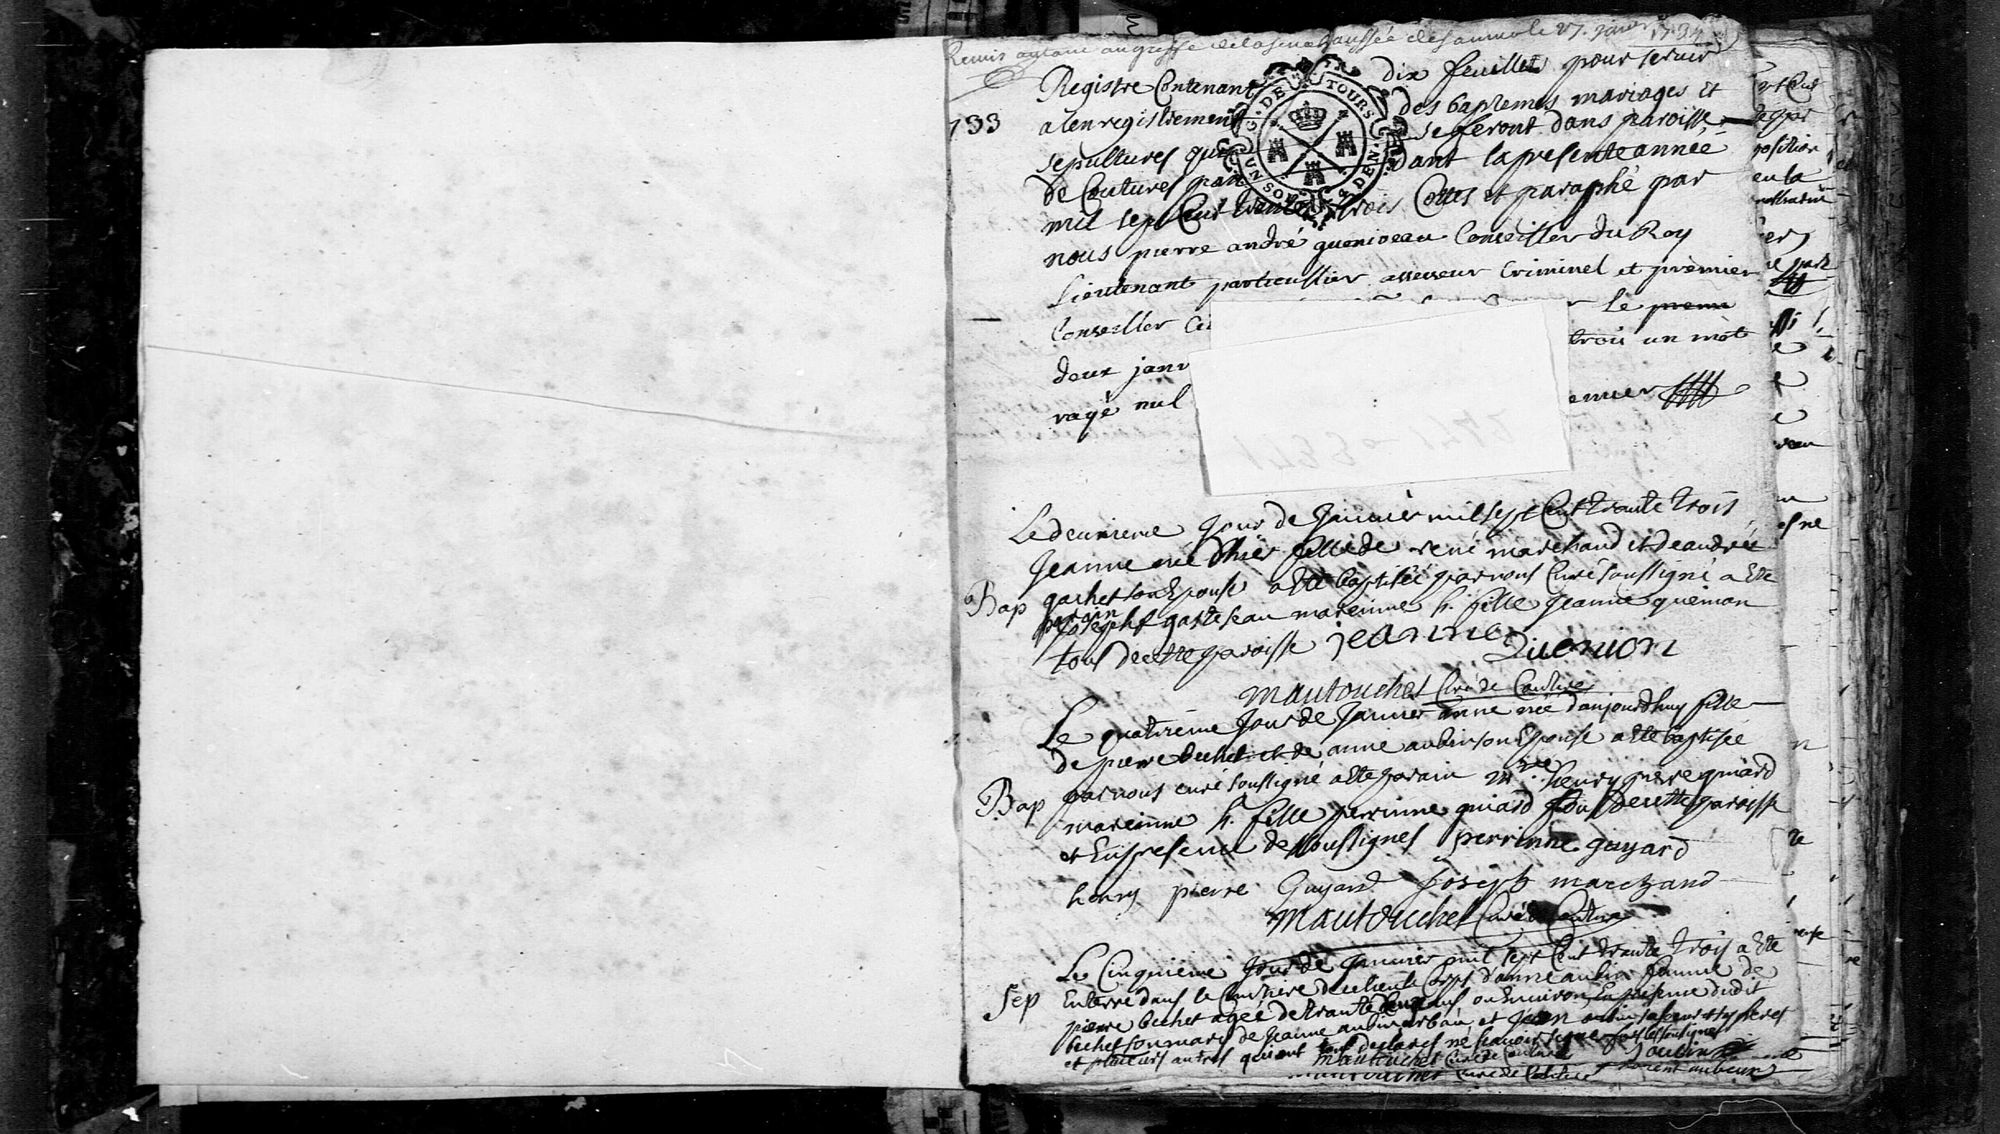 Remis au greffe de la senechaussée de saumur le 27 janvier 1734
Registre Contenant dix feuillet pour servir
1733
a lenregistrement des baptemes mariages et
sepultures qui se feront dans paroisse
de Coutures pandant la presente année
mil sept Cent trente trois Cottés et paraphé par
nous pierre andré queniveau Conseiller du Roy
Lieutenant particullier assesseur Criminel et premier
Conseiller Ci le premi
deux janv trois un mot
rayé nul emier
G. DE TOURS
VN SOL
DEN
1733-1742
Le deuxieme jour de Janvier mil sept Cent trante trois
Jeanne née d'hier fille de rené marchand et de andrée
Bap
gachet son Epouse a Eté baptisée par nous Curé soussigné a Eté
parain
Joseph gasteseau mareinne h. fille Jeanne quenion
tous de cette paroisse jeanne
Quenion
Mautouchet Curé de Couture
Le quatrieme Jour de Janvier anne née d'aujourdhuy fille
de pierre bechet et de anne aubin son Epouse a Eté baptisée
par nous curé soussigné a Eté parain Mre henry pierre guiard
Bap
mareinne h. fille perrinne guiard tous de cette paroisse
et En presence de soussignes perrinne guyard
henry pierre Guyard Joseph marchand
Mautouchet Curé de Couture
Le Cinquieme Jour de Janvier mil sept Cent trante trois a Eté
Sep
Enterré dans le Cimetiere de ce lieu le Corps d'anne aubin femme de
pierre bechet agée de trante deux ans ou Environ En presence dudit
bechet son mary de Jeanne aubin et Jean aubin ses freres
et plusieurs autres qui ont tous declarés ne scavoir signer fors les soussignes
Mautouchet Curé de Couture J aubin
Mautouchet Curé de Couture